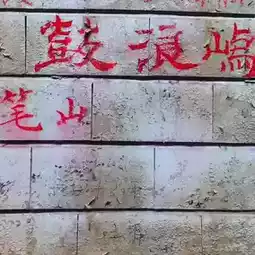 鼓浪屿
笔山